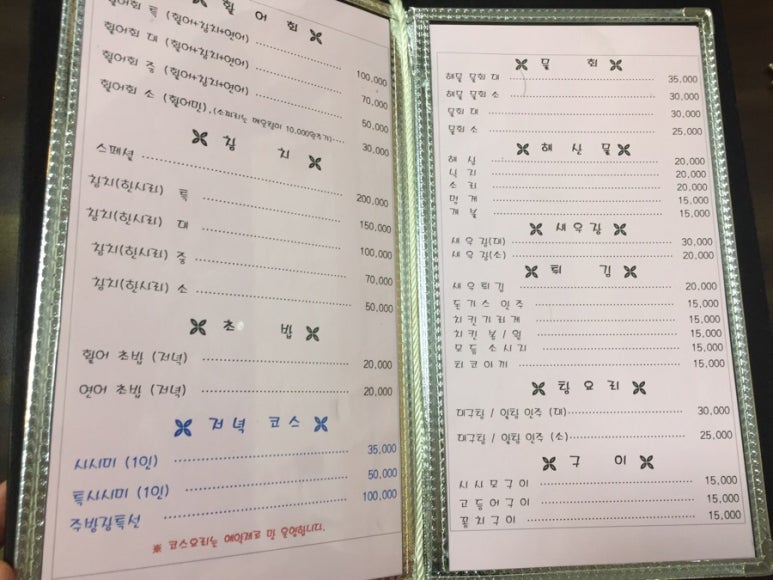 활 어 회
활어회 특 (활어+참치+연어) 100,000
활어회 대 (활어+참치+연어) 70,000
활어회 중 (활어+참치+연어) 50,000
활어회 소 (활어만), (소짜리는 매운탕이 10,000원추가) 30,000
참 치
스페셜 200,000
참치(한시라) 특 150,000
참치(한시라) 대 100,000
참치(한시라) 중 70,000
참치(한시라) 소 50,000
초 밥
활어 초밥 (저녁) 20,000
연어 초밥 (저녁) 20,000
저녁 코스
사시미 (1인) 35,000
특사시미 (1인) 50,000
주방장특선 100,000
※ 코스요리는 예약제로 만 운영합니다.
물 회
해물 물회 대 35,000
해물 물회 소 30,000
물회 대 30,000
물회 소 25,000
해 산 물
해 삼 20,000
낙 지 20,000
소 라 20,000
멍 게 15,000
개 불 15,000
새우장
새 우 장(대) 30,000
새 우 장(소) 20,000
튀 김
새 우 튀 김 20,000
돈 가 스 안 주 15,000
치 킨 가 라 게 15,000
치 킨 봉 / 윙 15,000
모 듬 소 시 지 15,000
타 코 야 끼 15,000
탕 요 리
대구탕 / 알탕 안주 (대) 30,000
대구탕 / 알탕 안주 (소) 25,000
구 이
시 사 모 구 이 15,000
고 등 어 구 이 15,000
꽁 치 구 이 15,000